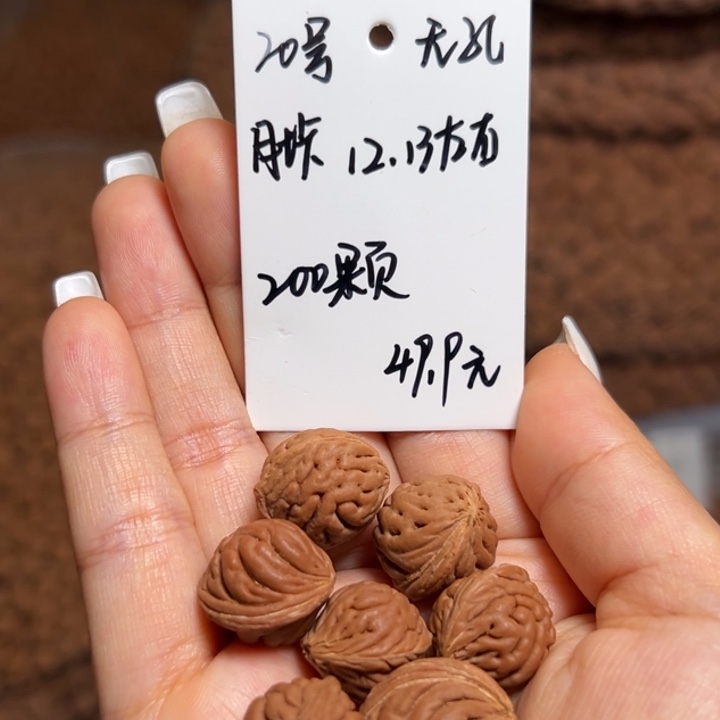 20号 无孔
12.13左右
200颗
49.9元